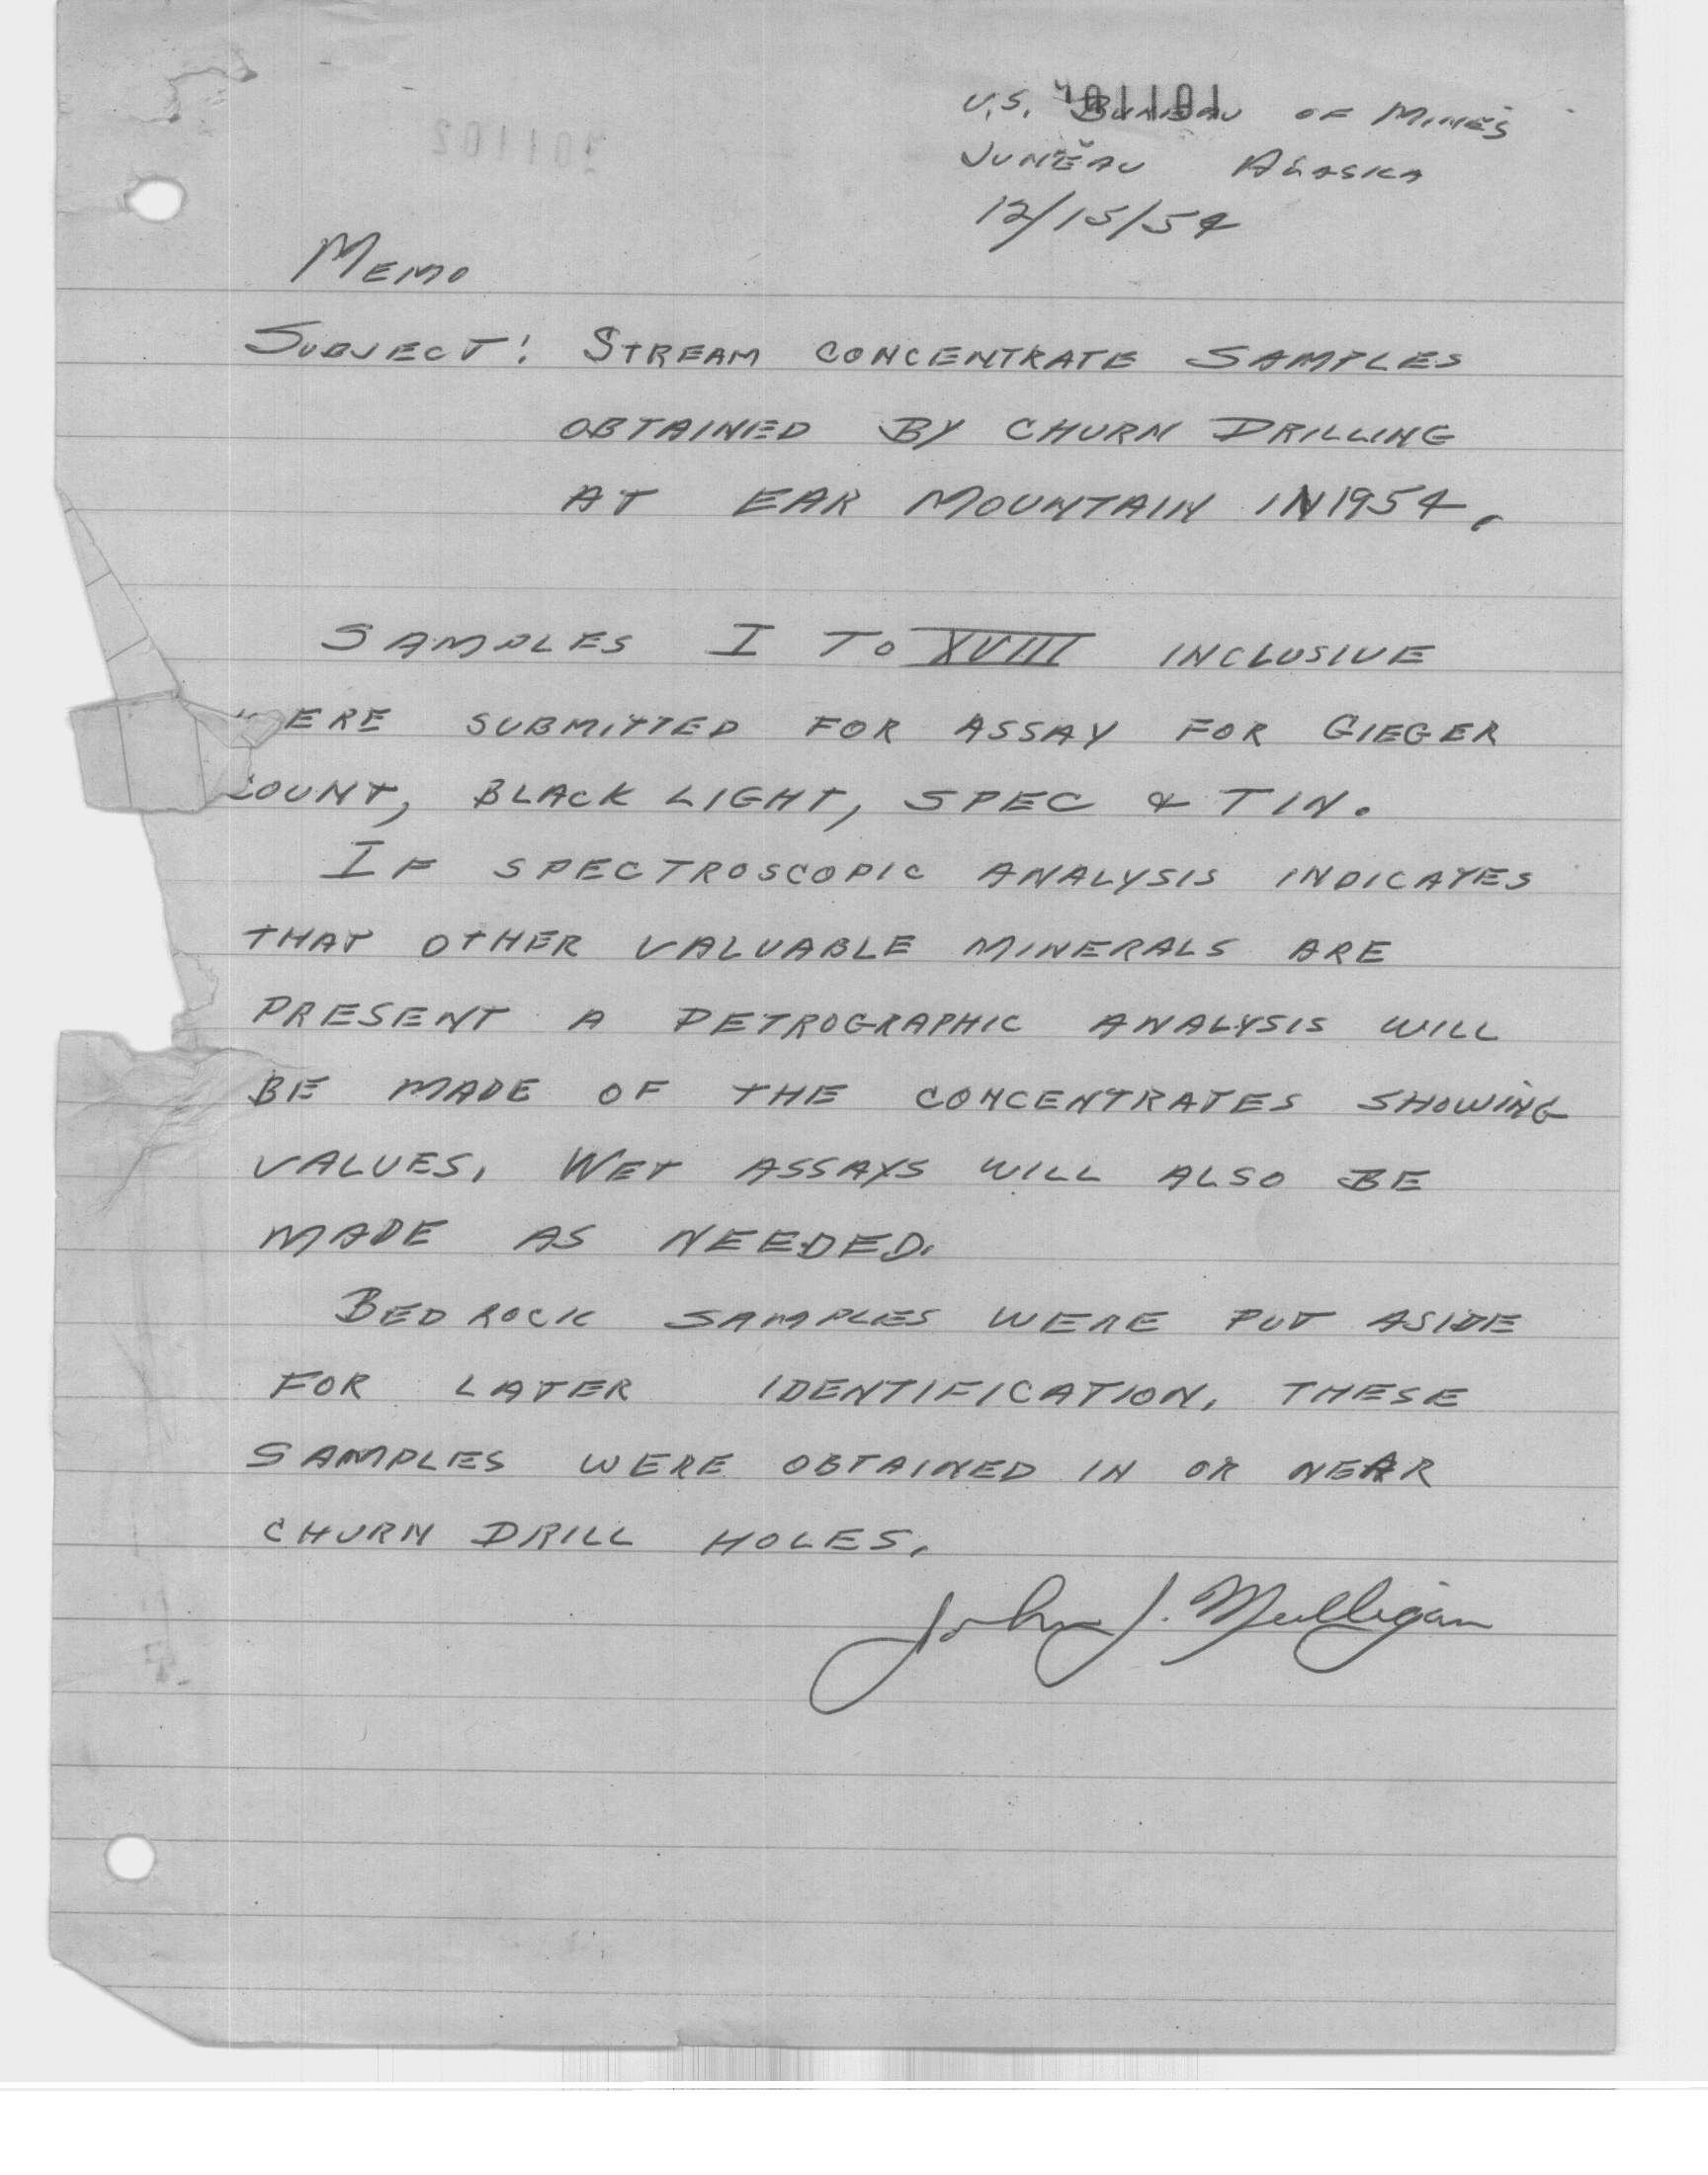 U.S. Bureau of Mines
Juneau Alaska
12/15/54
Memo
Subject: Stream concentrate samples
obtained by churn drilling
at Ear Mountain in 1954.
Samples I to XVIII inclusive
were submitted for assay for Gieger
count, black light, spec & tin.
If spectroscopic analysis indicates
that other valuable minerals are
present a petrographic analysis will
be made of the concentrates showing
values. Wet assays will also be
made as needed.
Bed rock samples were put aside
for later identification, these
samples were obtained in or near
churn drill holes.
John J. Mulligan